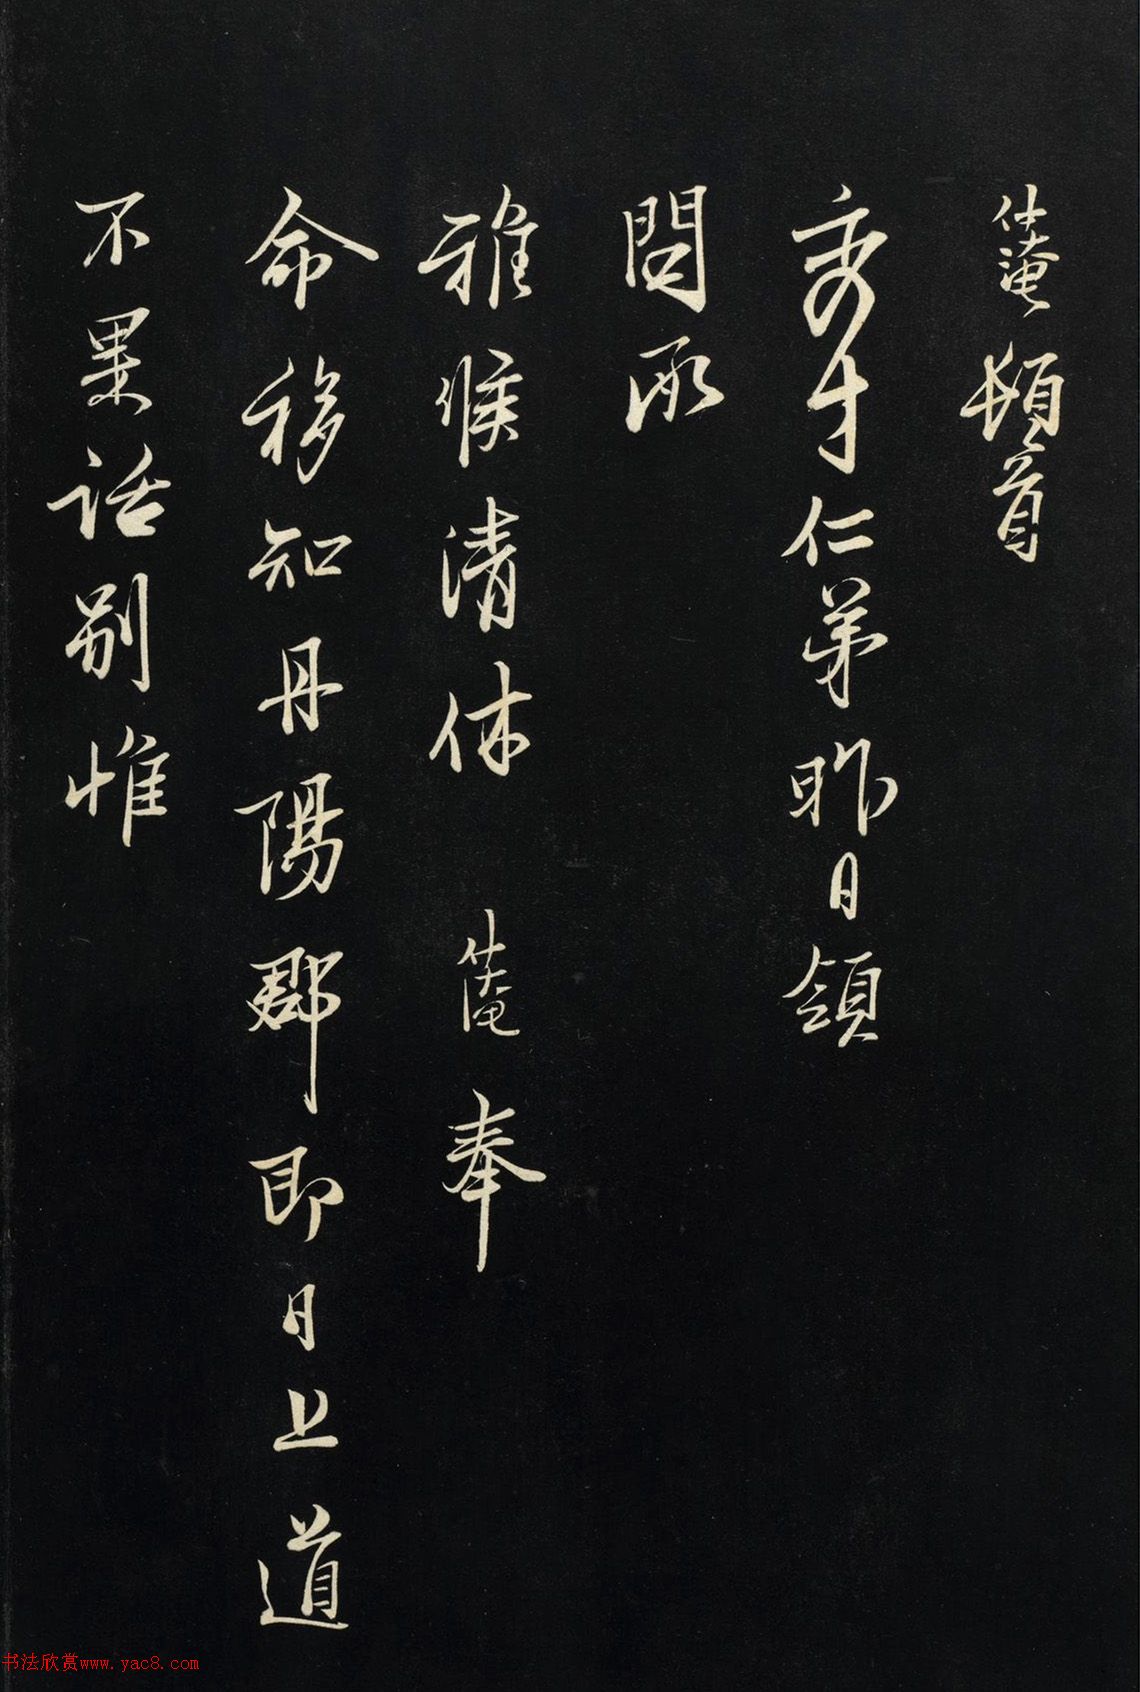 仕淹頓首
秀才仁弟昨日領
問承
雅候清休 仕淹奉
命移知丹陽郡即日上道
不果話別惟
书法欣赏www.yac8.com